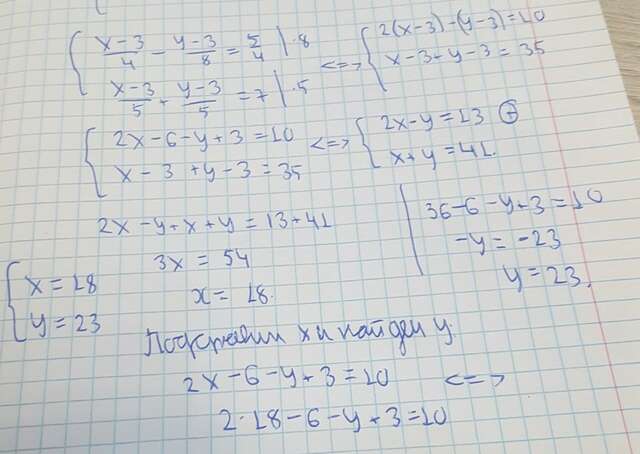 (x-3)/4 - (y-3)/8 = 5/4 | ·8
(x-3)/5 + (y-3)/5 = 7 | ·5
<=>
2(x-3)-(y-3)=10
x-3+y-3=35
2x-6-y+3=10
x-3+y-3=35
<=>
2x-y=13 ⊕
x+y=41.
2x-y+x+y=13+41
3x=54
x=18.
x=18
y=23
36-6-y+3=10
-y=-23
y=23.
Подставим x и найдем y.
2x-6-y+3=10 <=>
2·18-6-y+3=10